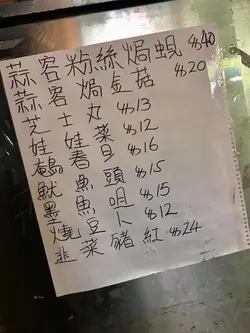 蒜容粉絲焗蜆 $40
蒜容焗金菇 $20
芝士丸 $13
娃娃菜 $12
鵪 $16
魷魚頭 $15
墨魚咀 $15
燒豆卜 $12
韭菜豬紅 $24